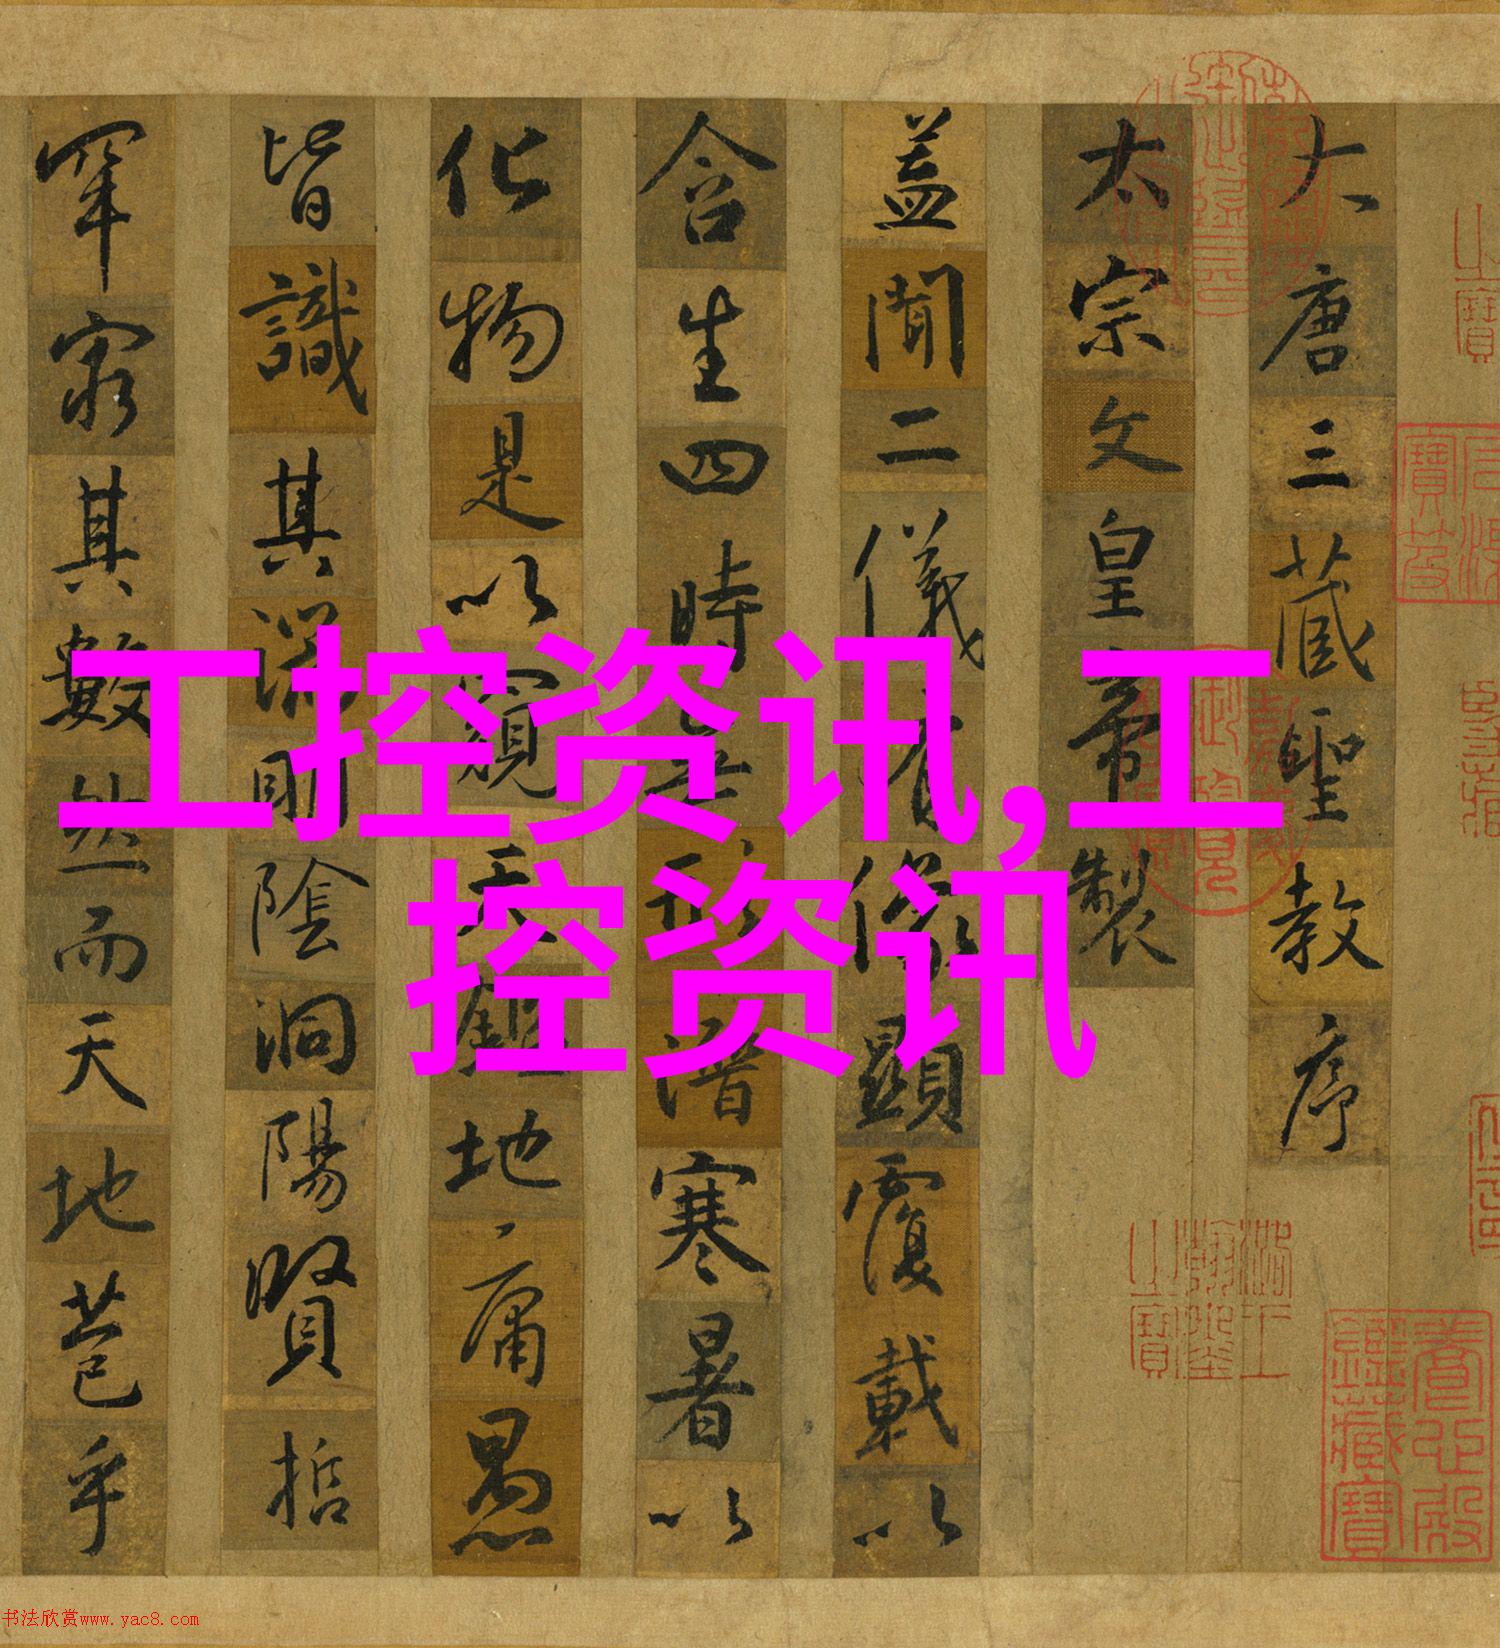 大唐三藏聖教序
太宗文皇帝製
蓋聞二儀有像顯覆載以
含生四時無形潛寒暑以
化物是以窺天鑑地庸愚
皆識其端明陰洞陽賢哲
罕窮其數然而天地苞乎
工控资讯,工
控资讯
养心殿鑑藏寶
书法欣赏www.yac8.com